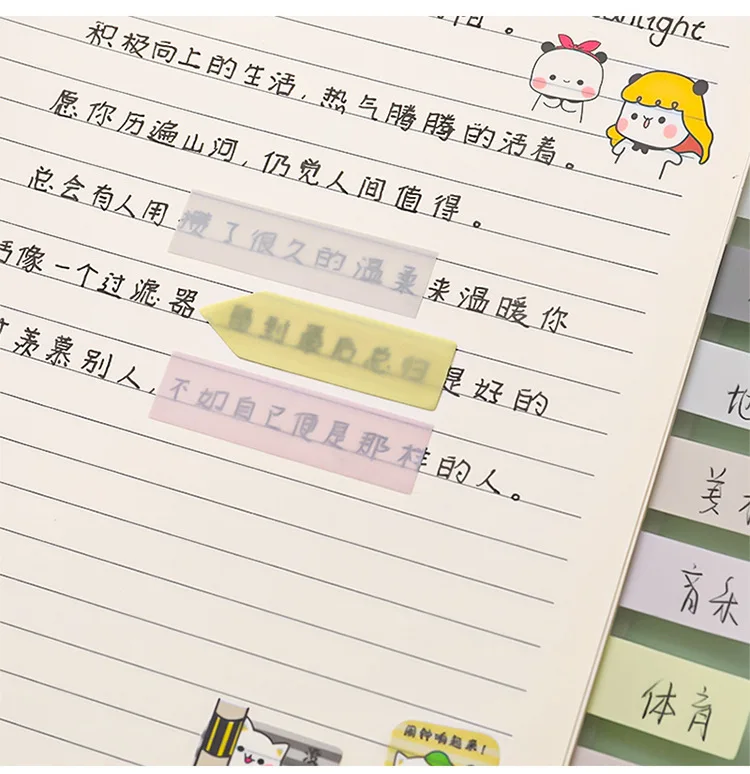 积极向上的生活，热气腾腾的活着。
愿你历遍山河，仍觉人间值得。
总会有人用攒了很久的温柔来温暖你
像一个过滤器留到最后总归是好的
羡慕别人，不如自己便是那样的人。
美
音乐
体育
闹钟响起来！